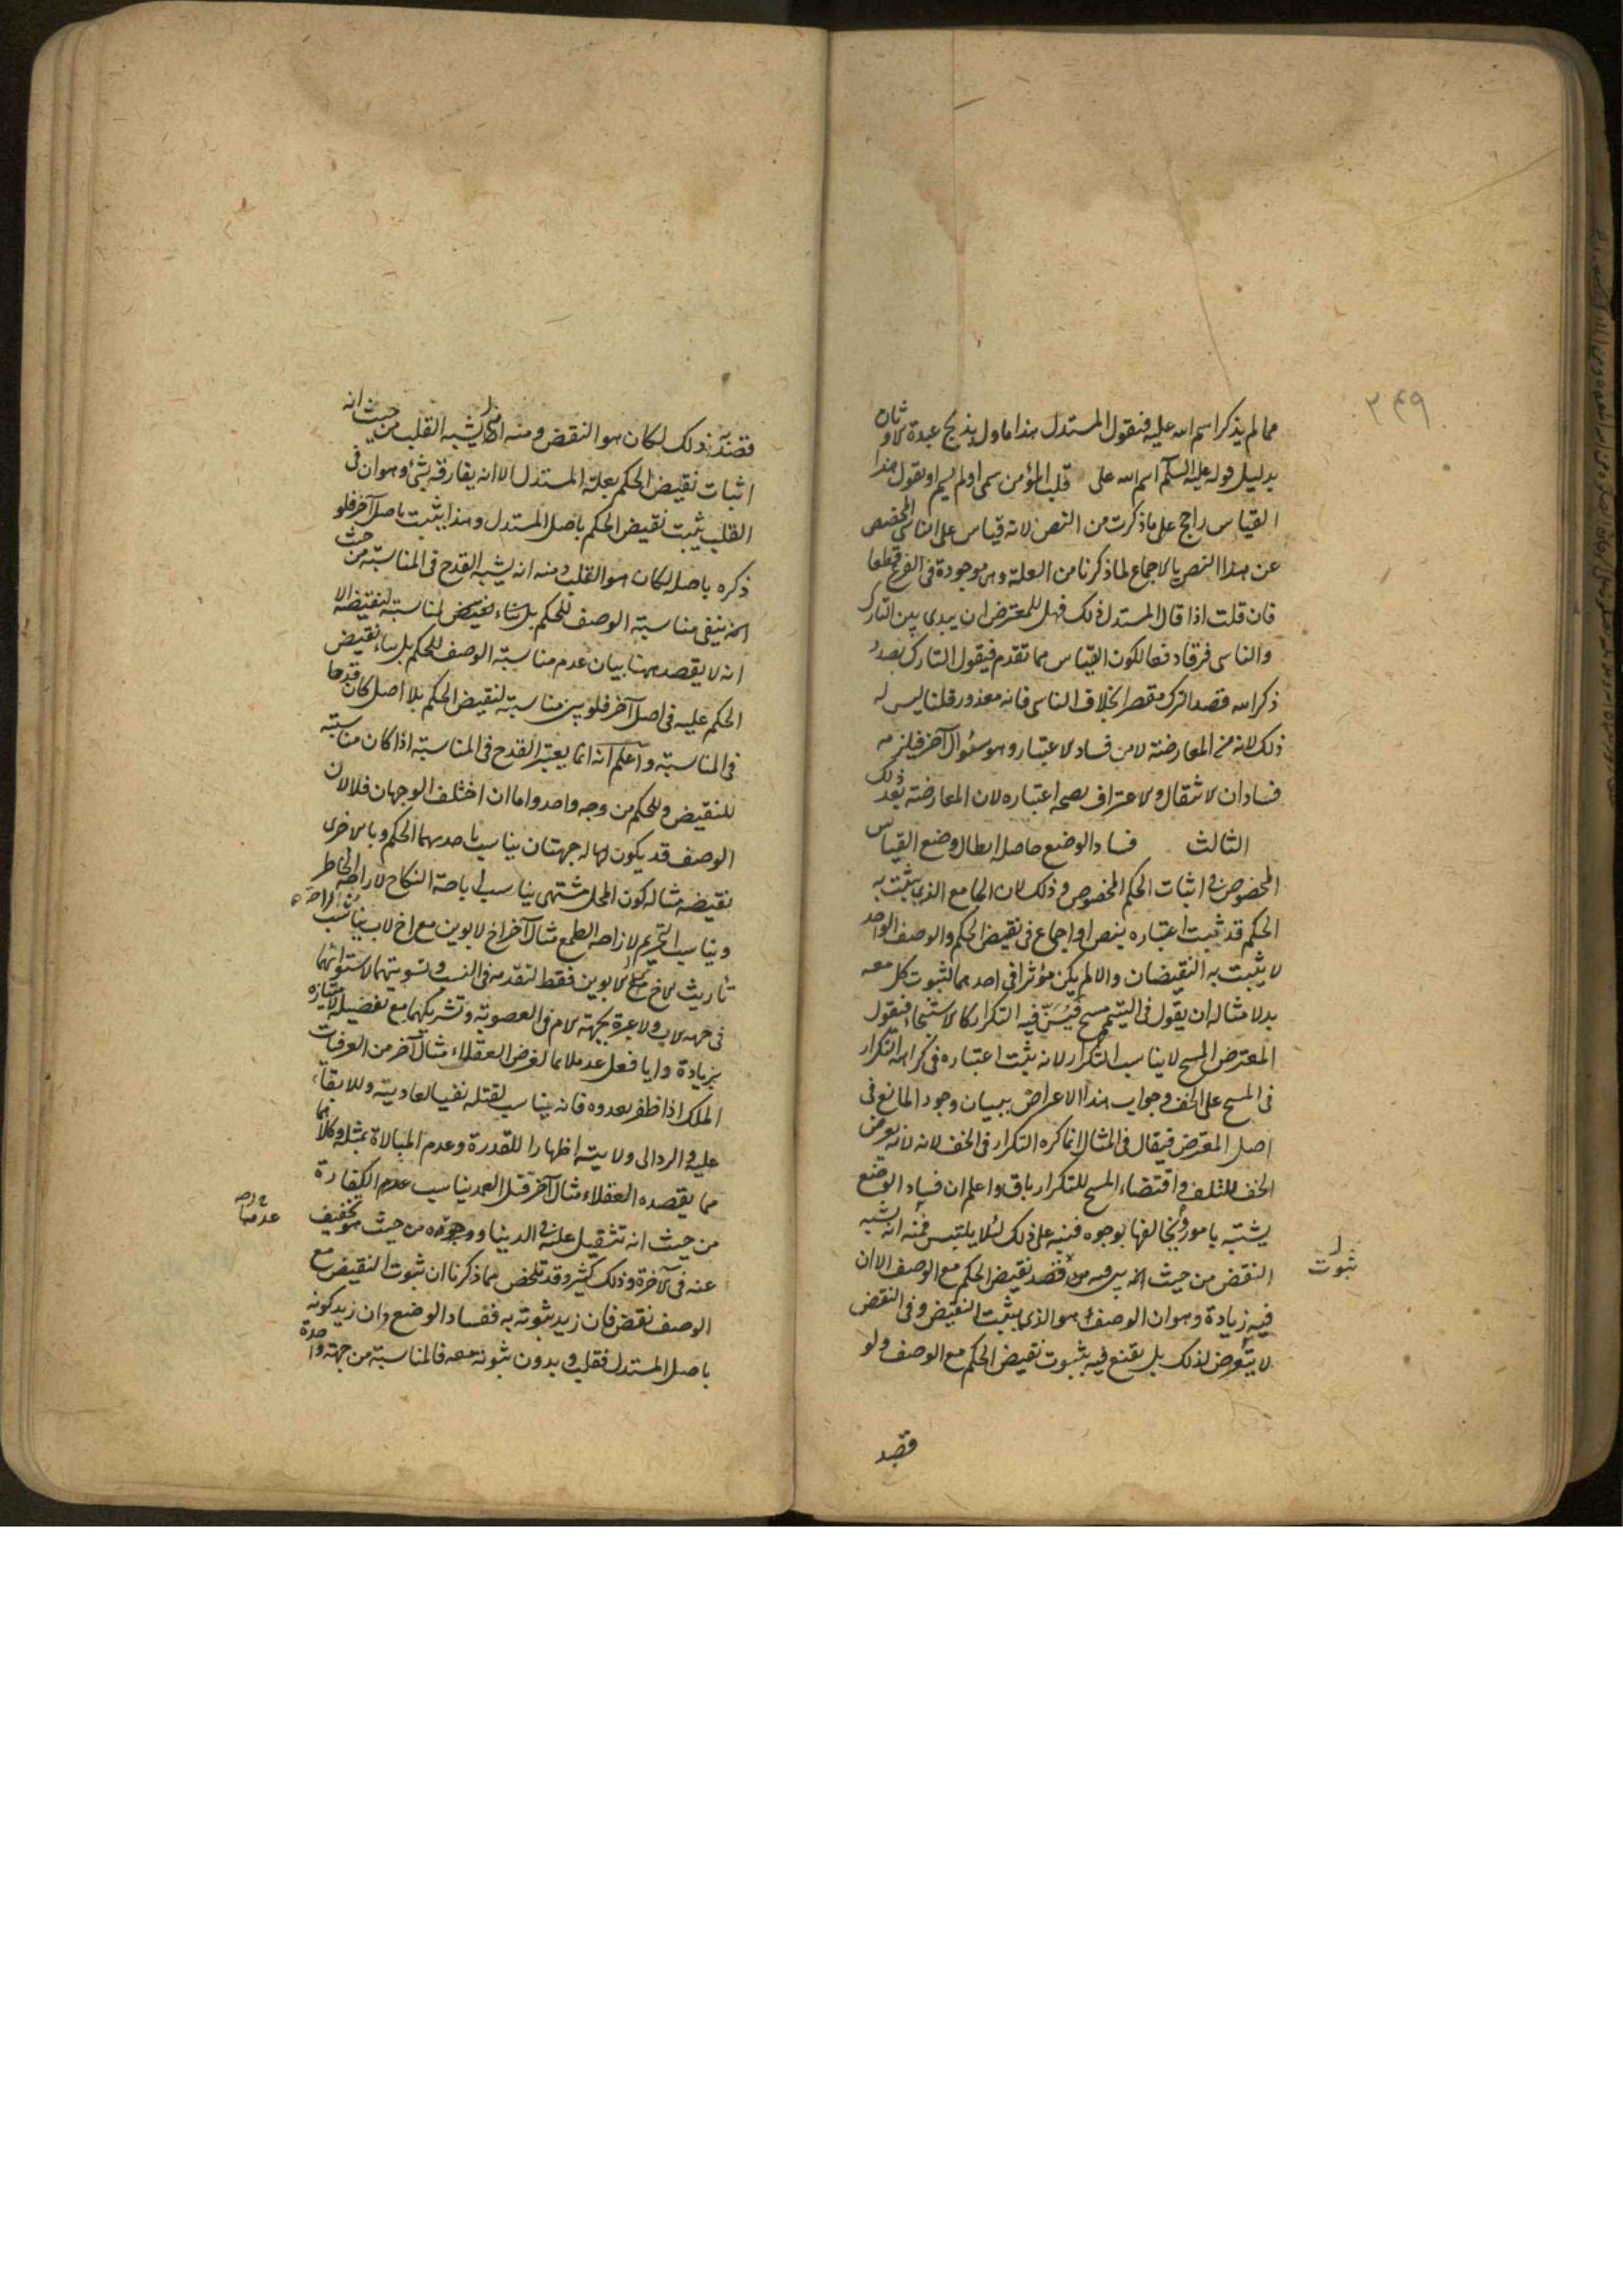 ٢٤٩
مما لم يذكر اسم الله عليه فنقول المستدل هذا ماول بذبح عبدة الاوثان
بدليل قوله عليه السلم اسم الله على قلب المؤمن سمى او لم يسم او بقول هذا
القياس راجح على ما ذكرت من النص لانه قياس على الناسي المخصص
عن هذا النص بالاجماع لما ذكرنا من العلة وهي موجودة في الفرع قطعا
فان قلت اذا قال المستدل ذلك فهل للمعترض ان يبدى بين التارك
والناسى فرقا دفعا لكون القياس مما تقدم فيقول التارك بصدد
ذكر الله قصد الترك مقصر بخلاف الناسى فانه معذور قلنا ليس له
ذلك لانه من المعارضة لا من فساد الاعتبار وهو سؤال آخر فيلزمه
فسادان الانتقال والاعتراف بصحة اعتباره لان المعارضة بعد ذلك
الثالث فساد الوضع حاصله ابطال وضع القياس
المخصوص في اثبات الحكم المخصوص وذلك لان الجامع الذي يثبت به
الحكم قد ثبت اعتباره بنص او اجماع في نقيض الحكم والوصف الواحد
لا يثبت به النقيضان والا لم يكن مؤثرا في احدهما لثبوت كل معه
بدلا مثاله ان يقول في التيمم مسح فيسن فيه التكرار كالاستنجاء فيقول
المعترض المسح لا يناسب التكرار لانه يثبت اعتباره في كراهة التكرار
في المسح على الخف وجواب هذا الاعراض ببيان وجود المانع في
اصل المعترض فيقال في المثال انما كره التكرار في الخف لانه لانه يعرض
الخف للتلف واقتضاء المسح للتكرار باق واعلم ان فساد الوضع
يشتبه بامور ويخالفها بوجوه فنبه على ذلك لئلا يلتبس فمنه انه يشبه
النقض من حيث انه قصد نقيض الحكم مع الوصف الا ان
ثبوت
فيه زيادة وهو ان الوصف هو الذي يثبت النقيض وفي النقض
لا يتعرض لذلك بل يقنع فيه بثبوت نقيض الحكم مع الوصف ولو
قصد
قصد به ذلك لكان هو النقض ومنه انه يشبه القلب من حيث انه
اثبات نقيض الحكم بعلة المستدل الا انه يفارقه بشئ وهو ان في
القلب يثبت نقيض الحكم باصل المستدل وهذا يثبت باصل آخر فلو
ذكره باصله لكان هو القلب ومنه انه يشبه القدح في المناسبة من حيث
انه ينفى مناسبة الوصف للحكم لمناسبته لنقيضه الا
انه لا يقصد ههنا بيان عدم مناسبة الوصف للحكم بل بناء نقيض
الحكم عليه في اصل آخر فلو بين مناسبته لنقيض الحكم بلا اصل كان قدحا
في المناسبة واعلم انه انما يعتبر القدح في المناسبة اذا كان مناسبته
للنقيض وللحكم من وجه واحد واما ان اختلف الوجهان فلا لان
الوصف قد يكون له جهتان يناسب باحدهما الحكم وبالاخرى
نقيضه مثاله كون المحل مشتهى يناسب اباحة النكاح لاراحة الخاطر
ويناسب التحريم لازاحة الطمع مثال آخر اخ لابوين مع اخ لاب يناسب
تأريث الاخ للابوين فقط لتقدمه في النسب وتسويتهما لاستوائهما
في جهة الاب ولا عبرة بجهة الام في العصوبة وتشريكهما مع تفضيله لامتيازه
بزيادة وايا فعل عد ملائما لغرض العقلاء مثال آخر من العرفيات
الملك اذا ظفر بعدوه فانه يناسب لقتله نفيا لعاديته وللابقاء
عليه ولايته اظهارا للقدرة وعدم المبالاة بمثله وكلاهما
مما يقصده العقلاء مثال آخر قتل العمد يناسب عدم الكفارة
من حيث انه تثقيل عليه في الدنيا ووجوده من حيث هو تخفيف
عنه في الآخرة وذلك كثير وقد تلخص مما ذكرنا ان ثبوت النقيض مع
الوصف نقض فان زيد ثبوته به ففساد الوضع وان زيد كونه
باصل المستدل فقلب وبدون ثبوته معه فالمناسبة من جهة واحدة